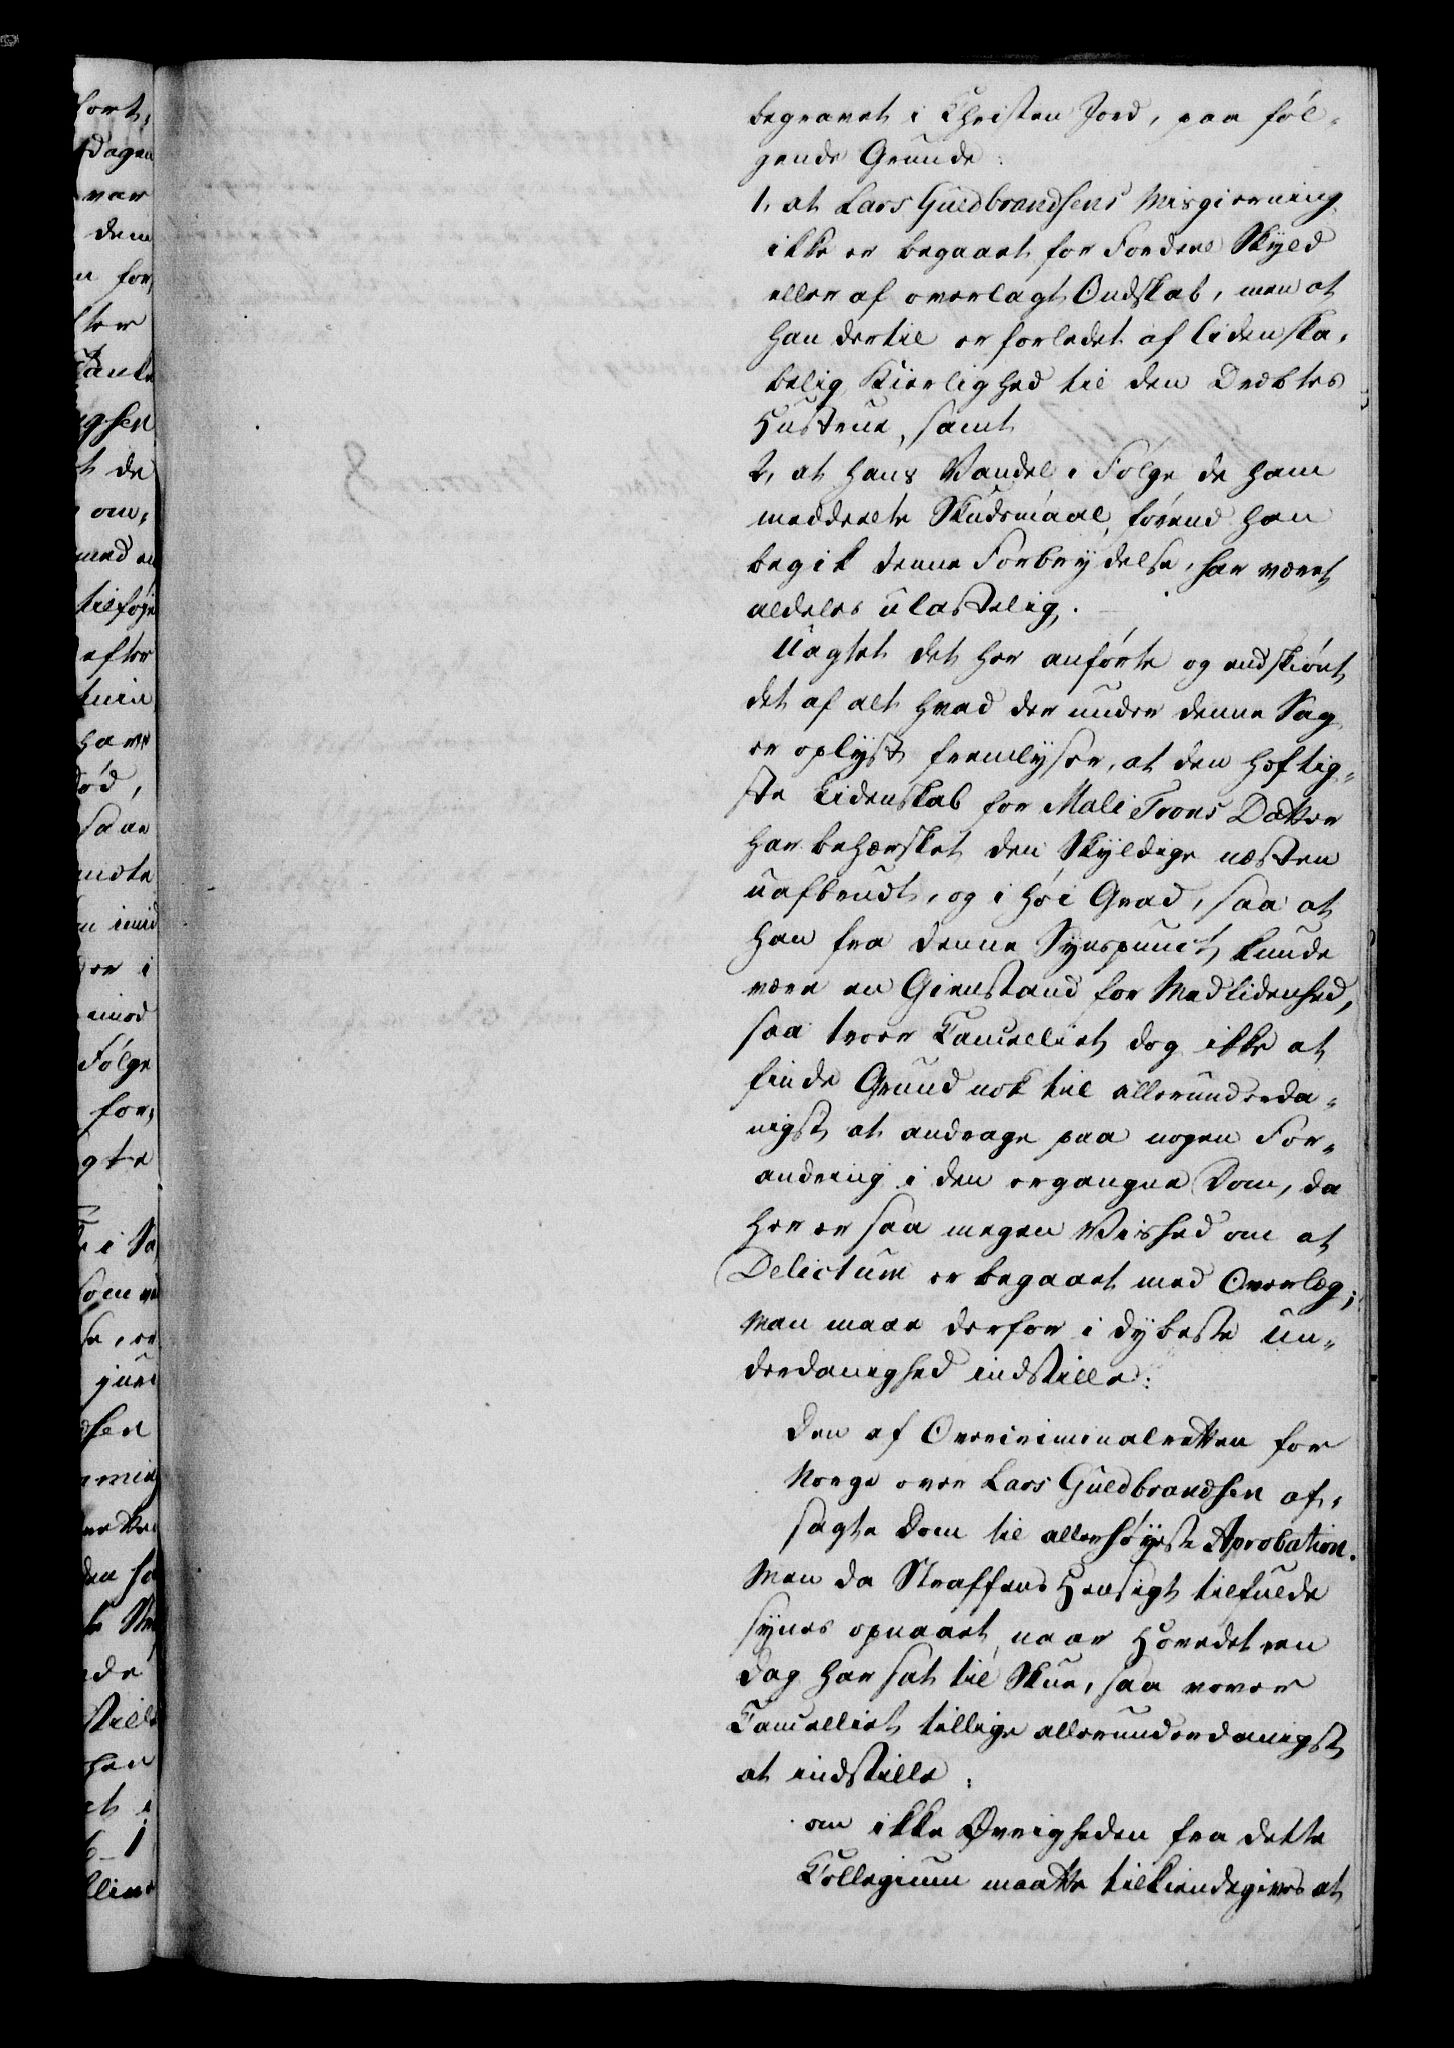 begravet i Christen Jord, paa føl-
gende Grunde:
1, at Lars Guldbrandsens Misgierning
ikke er begaaet for Fordeel Skyld
eller af overlagt Ondskab, men at
han dertil er forledet af lidenska-
belig Kierlighed til den Dræbtes
Hustrue, samt
2, at hans Vandel i Følge de ham
meddeelte Skudsmaal, førend han
begik denne Forbrydelse, har været
aldeles ulastelig.
Uagtet det her anførte og endskiønt
det af alt hvad der under denne Sag
er oplyst fremlyser, at den heftig-
ste Lidenskab for Mali Trons Datter
har behersket den Skyldige næsten
uafbrudt, og i høi Grad, saa at
han fra denne Synspunct kunde
være en Gienstand for Medlidenhed,
saa troer Cancelliet dog ikke at
finde Grund nok til allerunderda-
nigst at andrage paa nogen For-
andring i den ergangne Dom, da
her er saa megen Vished om at
Delictum er begaaet med Overlæg;
Man maae derfor i dybeste Un-
derdanighed indstille:
Den af Overcriminalretten for
Norge over Lars Guldbrandsen af-
sagte Dom til allerhøyeste Aprobation.
Men da Straffens Hensigt tilfulde
synes opnaaet, naar Hovedet een
Dag har sat til Skue, saa vover
Cancelliet tillige allerunderdanigst
at indstille:
om ikke Øvrigheden fra dette
Collegium maatte tilkiendegives at